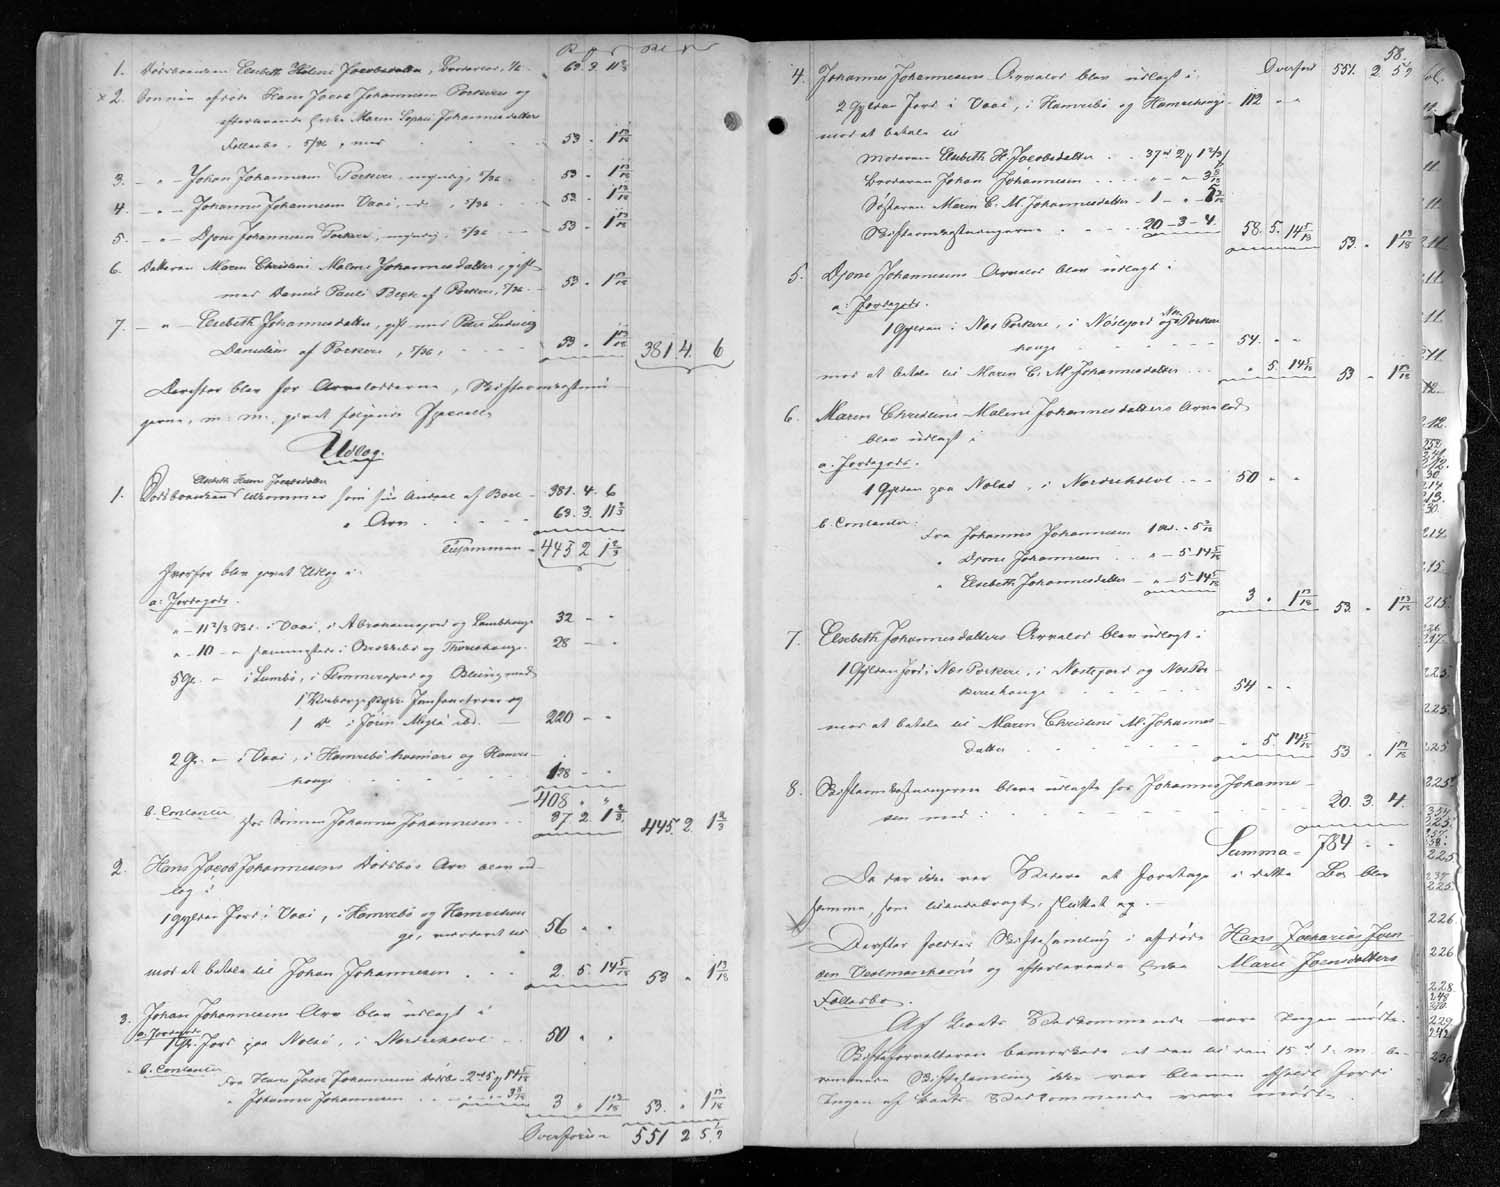 1. Elsebeth Helene Jacobsdatter, 1/6 63. 3. 11 2/3
x 2. Sønnen afdøde Hans Jacob Johannesen Porkere og
efterlevende Enke Maren Sophie Johannesdatter
Fællesbo, 5/36, med 53 " 1 13/18
3. – " – Johan Johannesen Porkere, myndig, 5/36 53 " 1 13/18
4. – " – Johannes Johannesen Vaai, do, 5/36 53 " 1 13/18
5. – " – Djone Johannesen Porkere, myndig, 5/36 53 " 1 13/18
6. Datteren Maren Christine Malene Johannesdatter, gift
med Daniel Pauli af Porkere, 5/36 53 " 1 13/18
7. – " – Elsebeth Johannesdatter, gift med Peter Ludvig
Danielsen af Porkere, 5/36, 53 " 1 13/18 381. 4. 6
Derefter blev for Arvelodderne, Skifteomkostnin-
gerne, m. m., gjort følgende
Udlæg.
1. Elsebeth Helene Jacobsdatter
tilkommer som sin Andeel af Boet 381. 4. 6
" Arv 63. 3. 11 2/3
Tilsammen 445 2 1 2/3
hvorfor blev gjort Udlæg i:
a: Jordegods.
" – 11 2/3 Sk. i Vaai, i Abrahamsjord og Lambhauge 32 " "
" – 10 – " sammesteds i og Thoreshauge 28 " "
5 Gl. " i Sumbø, i og med
1 og
1 do. i Jørin ibd. 220 " "
2 Gl. " i Vaai, i Hamrebø og Hamre-
hauge 128 " "
408 " "
b. Contanter fra Sønnen Johannes Johannesen 37 2. 1 2/3 445. 2. 1 2/3
2. Hans Jacob Johannesens Dødsbos Arv blev ud-
lagt i
1 Gylden Jord i Vaai, i Hamrebø og Hamrehau-
ge, vurderet til 56 " "
mod at betale til Johan Johannesen 2. 5. 14 5/18 53 " 1 13/18
3. Johan Johannesens Arv blev udlagt i
a. Jordegods
1 Gl. Jord paa Nolsø, i Nordreholve 50 " "
b. Contanter
Fra Hans Jacob Johannesens Dødsbo 2 rd 5 14 5/18
" Johannes Johannesen " – " – 3 8/18 3 " 1 13/18 53. " 1 13/18
Overføres 551 2 5 1/9
58.
4. Johannes Johannesens Arvelod blev udlagt i: Overført 551. 2 5 1/9
2 Gylden Jord i Vaai, i Hamrebø og Hamrehauge 112 " "
mod at betale til
Moderen Elsebeth H. Jacobsdatter 37 rd 2 1 2/3
Broderen Johan Johannesen " – " – 3 8/18
Søsteren Maren C. M. Johannesdatter 1 – " – 5 2/18
Skifteomkostningerne 20 – 3 – 4. 58. 5. 14 5/18 53. " 1 13/18
5. Djone Johannesens Arvelod blev udlagt i
a: Jordegods.
1 Gylden i Næs Porkere, i Nøstejord og Næs Porkere
hauge 54. " "
mod at betale til Maren C. M. Johannesdatter " 5. 14 5/18 53 " 1 13/18
6. Maren Christine Malene Johannesdatters Arvelod
blev udlagt i
a. Jordegods.
1 Gylden paa Nolsø, i Nordreholve 50 " "
b. Contanter:
Fra Johannes Johannesen 1 rd. " 5 2/18
" Djone Johannesen " – 5 14 5/18
" Elsebeth Johannesdatter – " – 5 14 5/18
3 " 1 13/18 53. " 1 13/18
7. Elsebeth Johannesdatters Arvelod blev udlagt i
1 Gylden Jord i Næs Porkere, i Nøstejord og Næs Por-
kerehauge 54 " "
mod at betale til Maren Christine M. Johannes-
datter " 5. 14 5/18 53 " 1 13/18
8. Skifteomkostningerne bleve udlagte for Johannes Johanne-
sen med: 20. 3. 4.
Summa 784 " "
Da der ikke var Videre at foretage i dette Bo blev
samme, som tilendebragt, sluttet og. –
Derefter holdtes Skiftesamling i afdøde Hans Zacharias Joen-
sen og efterlevende Enke Marie Joensdatters
Fællesbo.
Af Boets Vedkommende vare Ingen mødte.
Skifteforvalteren bemærkede at den til den 15 d. M. be-
rammede Skiftesamling ikke var bleven afholdt fordi
Ingen af Boets Vedkommende vare mødte.